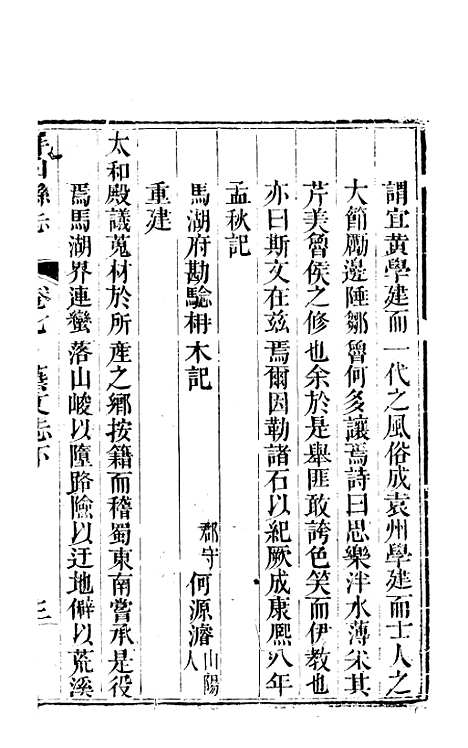 謂宜黃學建而一代之風俗成袁州學建而士人之
大節勵邊陲鄒魯何多讓焉詩曰思樂泮水薄采其
芹美魯侯之修也余於是舉匪敢誇色笑而伊教也
亦曰斯文在茲焉爾因勒諸石以紀厥成康熙八年
孟秋記
馬湖府勘騐枏木記 郡守何源濬山陽人
重建
太和殿議蒐材於所產之鄉按籍而稽蜀東南嘗承是役
焉馬湖界連蠻落山峻以墮路險以迂地僻以荒溪
山縣志 卷七 藝文志下 三